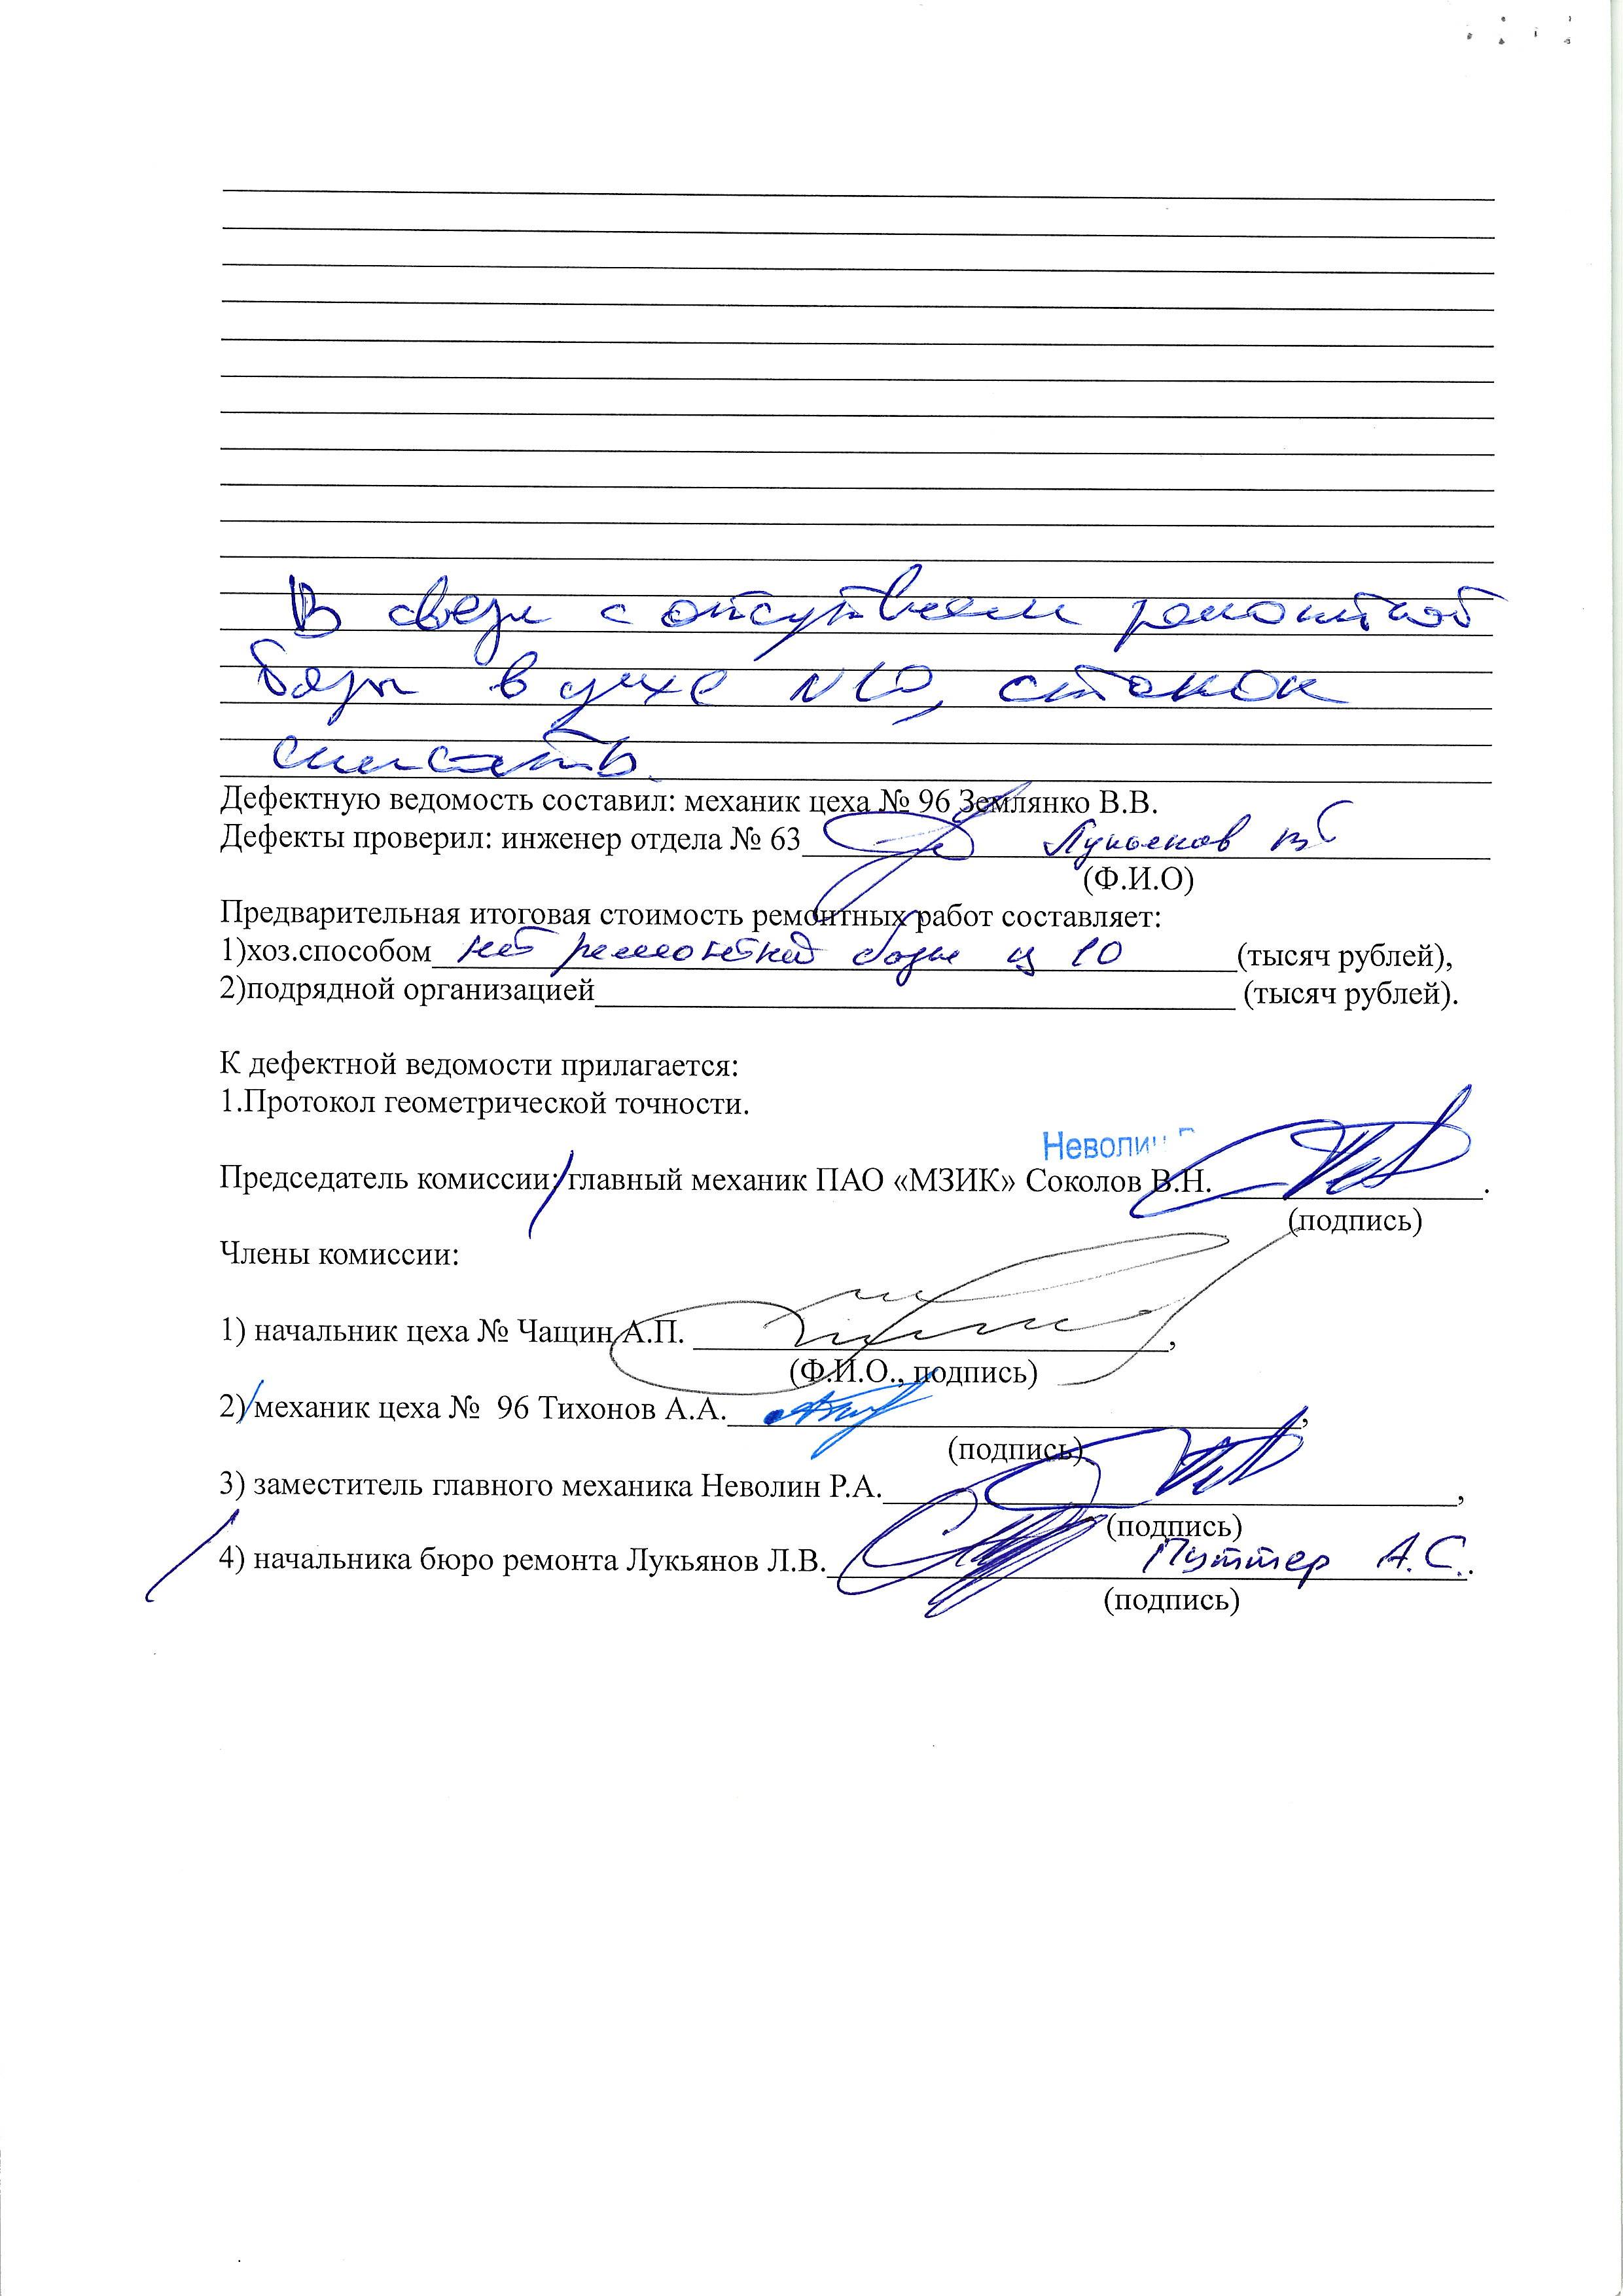 В связи с отсутвием ремонтной
базы в цехе N10, станок
списать.
Дефектную ведомость составил: механик цеха № 96 Землянко В.В.
Дефекты проверил: инженер отдела № 63 Лукьянов
(Ф.И.О)
Предварительная итоговая стоимость ремонтных работ составляет:
1)хоз.способом нет ремонтной базы ц 10 (тысяч рублей),
2)подрядной организацией (тысяч рублей).
К дефектной ведомости прилагается:
1.Протокол геометрической точности.
Неволин
Председатель комиссии: главный механик ПАО «МЗИК» Соколов В.Н.
(подпись)
Члены комиссии:
1) начальник цеха № Чащин А.П. ,
(Ф.И.О., подпись)
2) механик цеха № 96 Тихонов А.А. ,
(подпись)
3) заместитель главного механика Неволин Р.А. ,
(подпись)
4) начальника бюро ремонта Лукьянов Л.В. Путтер А.С. .
(подпись)